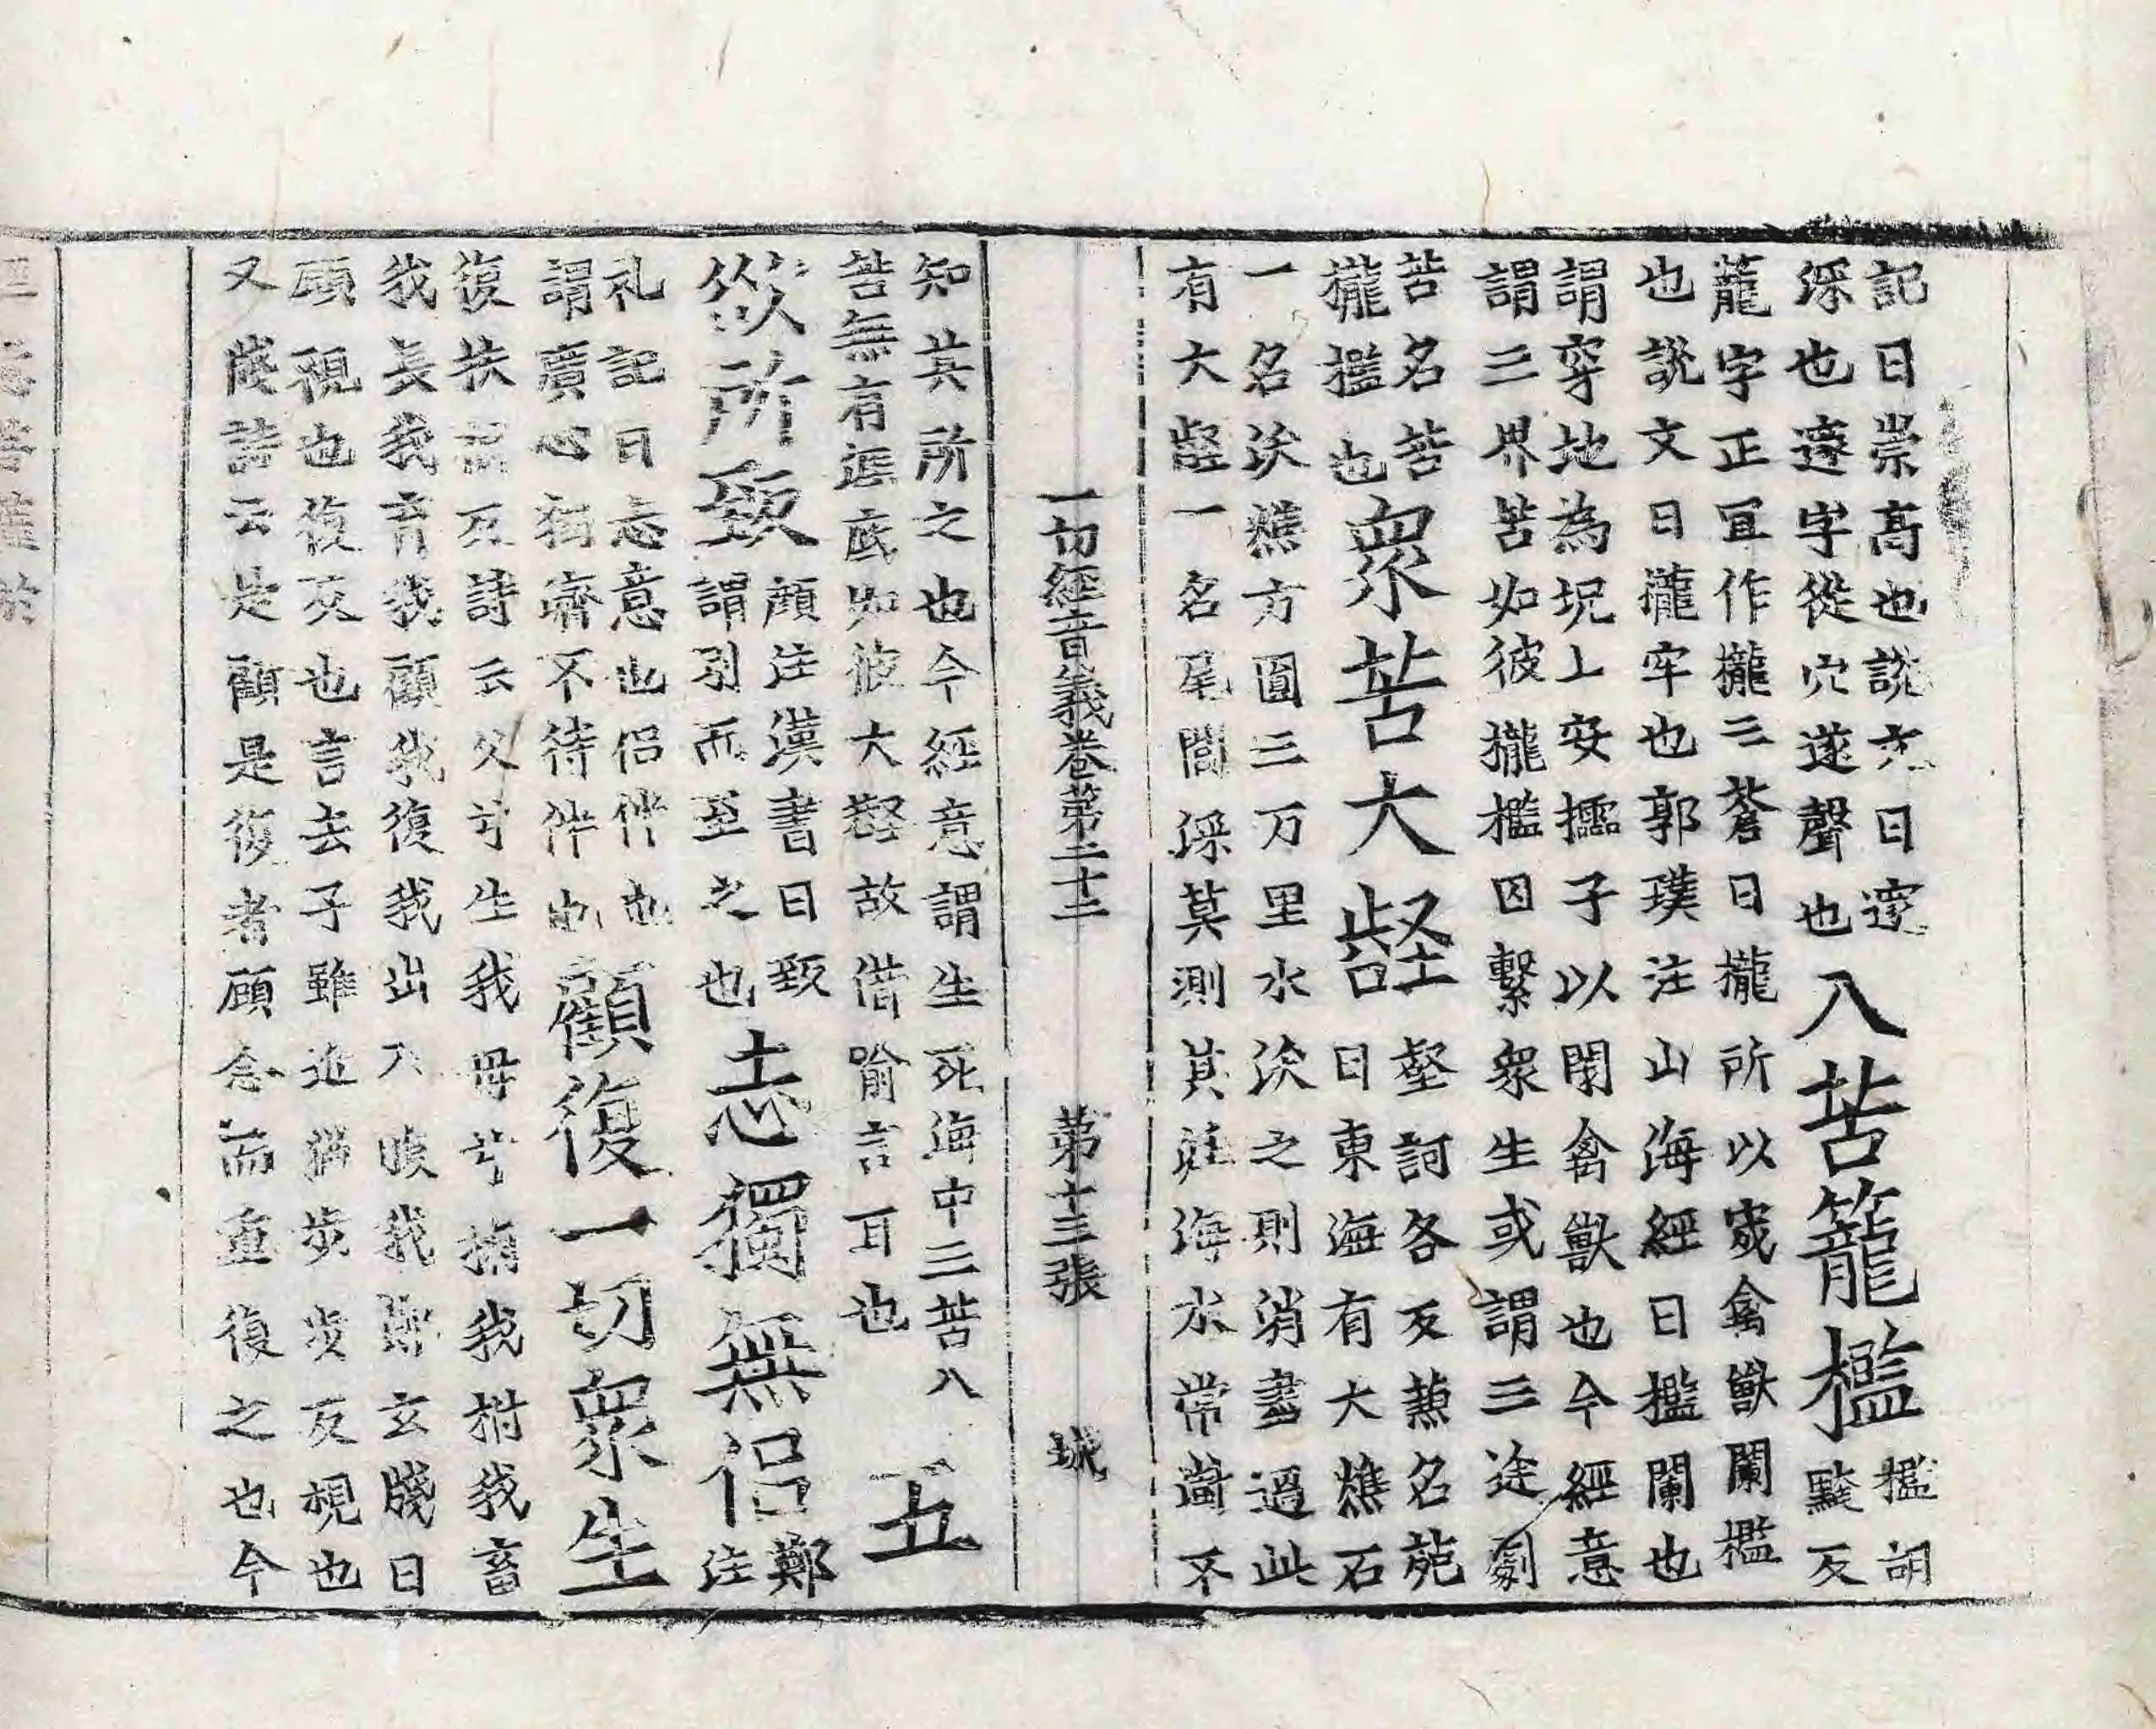 記曰崇高也說文曰邃
深也邃字從穴遂聲也
八苦籠檻
檻胡
黤反
籠字正冝作櫳三蒼曰櫳所以宬禽獸闌檻
也說文曰櫳牢也郭璞注山海經曰檻闌也
謂穿地為坑上安櫺子以閉禽獸也今經意
謂三界苦如彼櫳檻囚繫衆生或謂三途劇
苦名苦
櫳檻也
衆苦大壑
壑訶各反兼名苑
曰東海有大燋石
一名沃燋方圓三万里水沃之則消盡過此
有大壑一名尾閭深莫測其涯海水常不
一切經音義卷第二十二 第十三張 珹
知其所之也今經意謂生死海中三苦八
苦無有涯底如彼大壑故借喻言耳也
五
欲所致
顔注漢書曰致
謂引而至之也
志獨無侶
鄭
注
礼記曰志意也侶伴也
謂廣心獨濟不待伴也
顧復一切衆生
復扶福反詩云父兮生我母兮掬我拊我畜
我長我育我顧我復我出入腹我鄭玄牋曰
顧視也復反也言去子雖近猶步步反視也
又牋詩云是顧是復者顧念而重復之也今